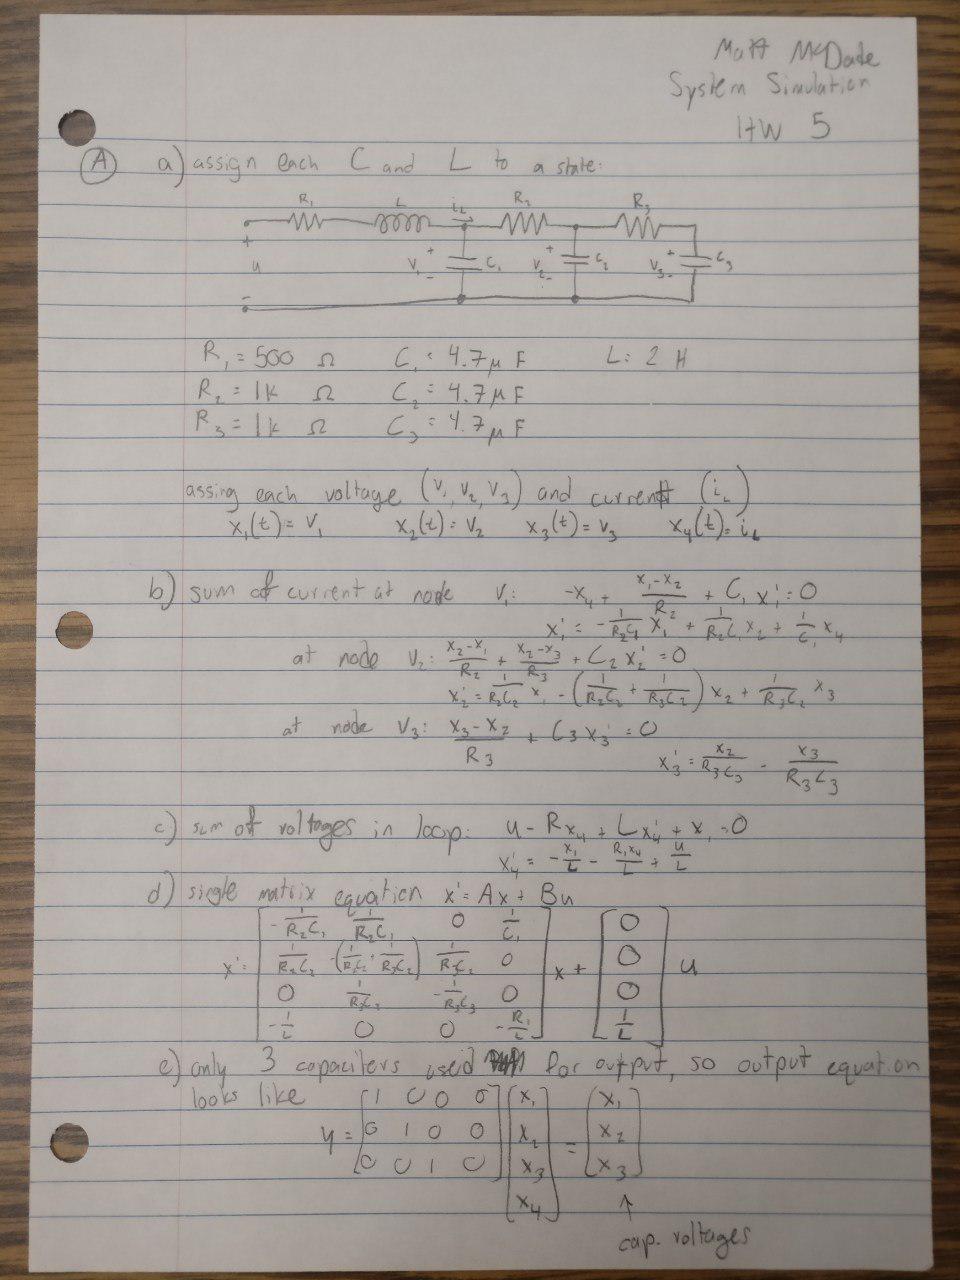 Matt McDade
System Simulation
HW 5
(A) a) assign each C and L to a state:
R₁ L i_L R₂ R₃
+ u - V₁ + - C₁ V₂ + - C₂ V₃ + - C₃
R₁ = 500 Ω C₁ : 4.7μ F L: 2 H
R₂ = 1k Ω C₂ = 4.7μ F
R₃ = 1k Ω C₃ : 4.7μ F
assing each voltage (V₁, V₂, V₃) and current (i_L)
x₁(t) = V₁ x₂(t) = V₂ x₃(t) = V₃ x₄(t) = i_L
b) sum of current at node V₁: -x₄ + (x₁-x₂)/R₂ + C₁ x₁' = 0
x₁' = -1/(R₂C₁) x₁ + 1/(R₂C₁) x₂ + 1/C₁ x₄
at node V₂: (x₂-x₁)/R₂ + (x₂-x₃)/R₃ + C₂ x₂' = 0
x₂' = 1/(R₂C₂) x₁ - (1/(R₂C₂) + 1/(R₃C₂)) x₂ + 1/(R₃C₂) x₃
at node V₃: (x₃-x₂)/R₃ + C₃ x₃' = 0
x₃' = x₂/(R₃C₃) - x₃/(R₃C₃)
c) sum of voltages in loop: u - Rx₄ + Lx₄' + x₁ = 0
x₄' = -x₁/L - R₁x₄/L + u/L
d) single matrix equation x' = Ax + Bu
x' = [-1/(R₂C₁) 1/(R₂C₁) 0 1/C₁
1/(R₂C₂) -(1/(R₂C₂) + 1/(R₃C₂)) 1/(R₃C₂) 0
0 1/(R₃C₃) -1/(R₃C₃) 0
-1/L 0 0 -R₁/L] x + [0 0 0 1/L] u
e) only 3 capaciters used for output, so output equation
looks like
y = [1 0 0 0
0 1 0 0
0 0 1 0] [x₁ x₂ x₃ x₄] = [x₁ x₂ x₃]
↑
cap. voltages